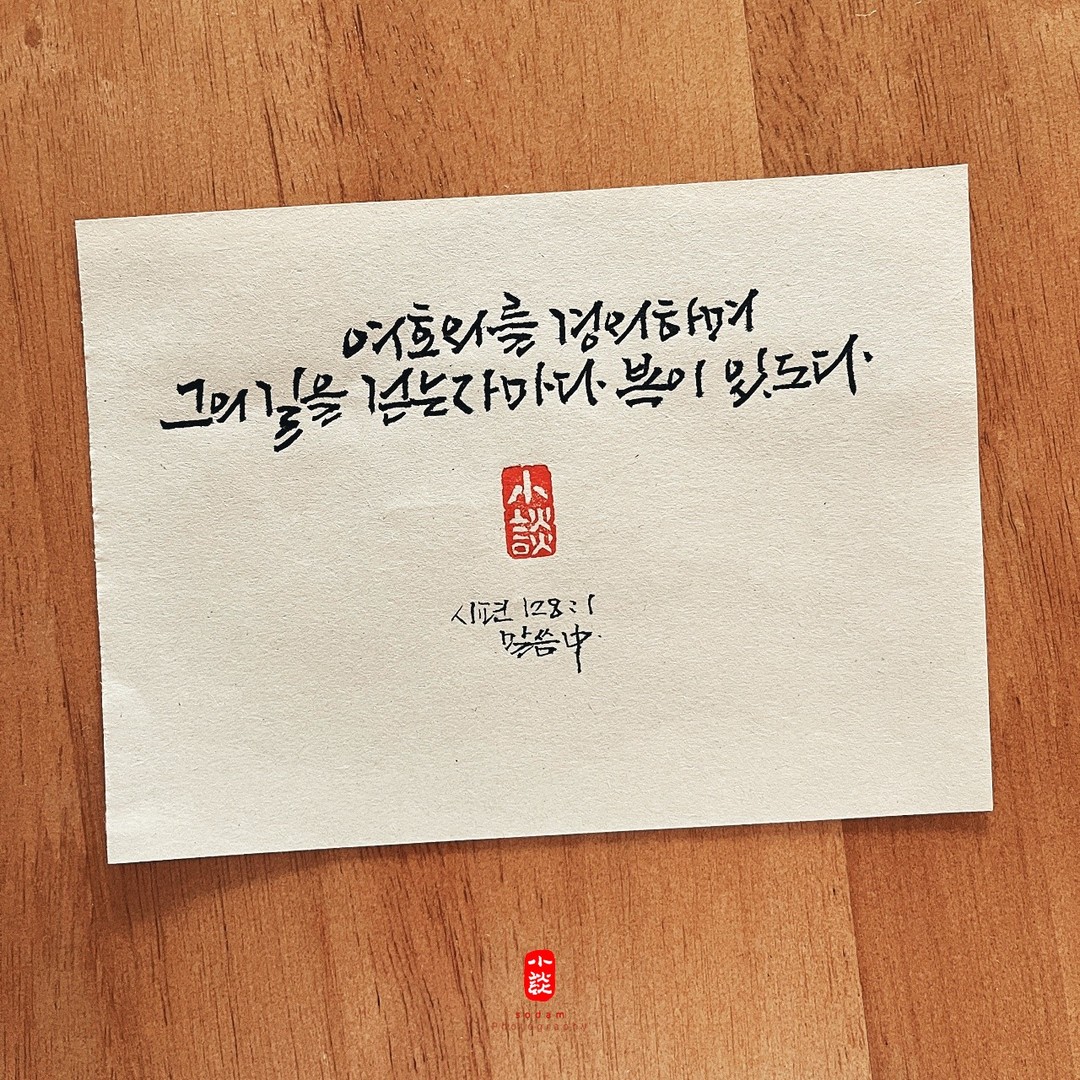 여호와를 경외하며
그의 길을 걷는 자마다 복이 있도다.
小談
시편 128:1
말씀中.
小談
sodam
Photography